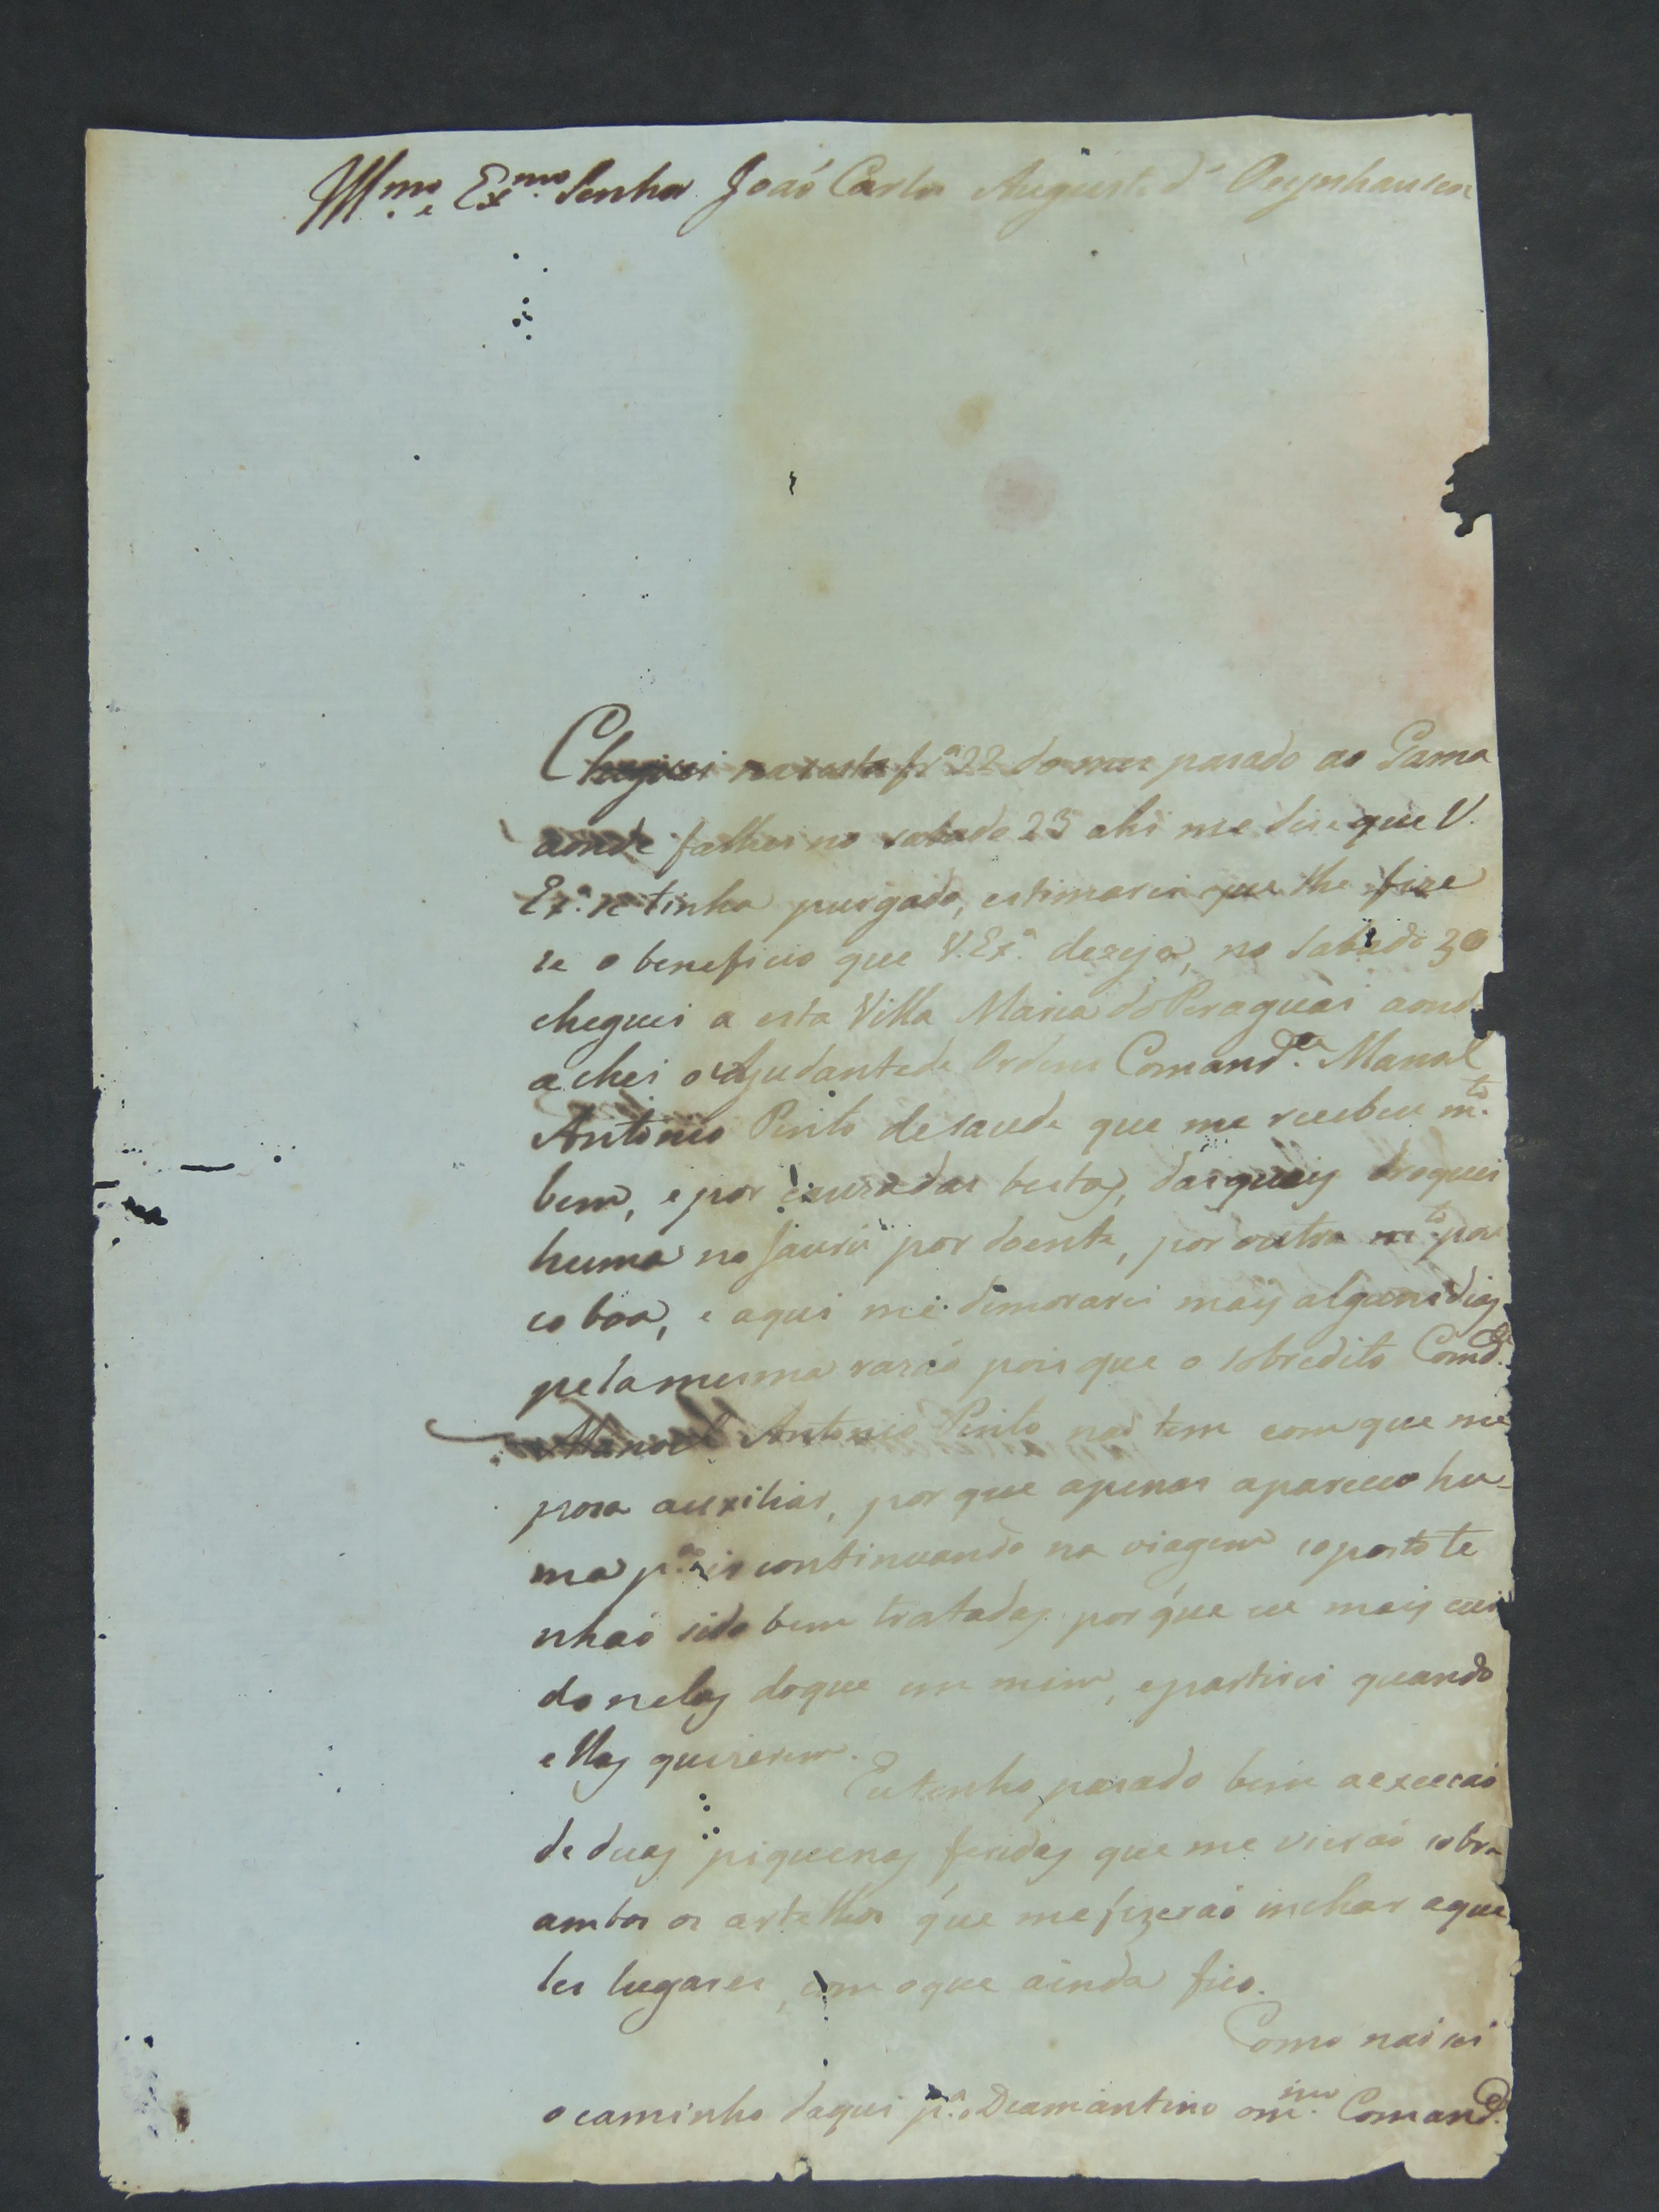 Illmo. e Exmo. Senhor João Carlos Augusto d' Oeynhausen
Cheguei na sexta fra. 22 do mez pasado ao Gama
aonde falhei no sabado 23 ahi me dise que V.
Exa. se tinha purgado, estimarei que lhe fize
se o beneficio que V. Exa. dezeja, no sabado 30
cheguei a esta Villa Maria do Paraguai aonde
achei o Ajudante de Ordens Comande. Manoel
Antonio Pinto de saude que me recebeu mto.
bem, e por cauza das bestas, das quais troquei
huma no Jaurú por doente, por outra mto. pou
co boa, e aqui me demorarei mais alguns dias
pela mesma razaõ pois que o sobredito Comde.
Manoel Antonio Pinto naõ tem com que me
posa auxiliar, por que apenas apareceo hu-
ma pa. ir continuando na viagem soposto te
nhaõ sido bem tratadas por que eu mais cui
do nelas do que em mim, e partirei quando
ellas quizerem.
Eu tenho pasado bem a exceçaõ
de duas piquenas feridas que me vieraõ sobre
ambos os artelhos que me fizeraõ inchar aque
les lugares, com o que ainda fico.
Como naõ sei
o caminho daqui pa. o Diamantino o mmo. Comande.